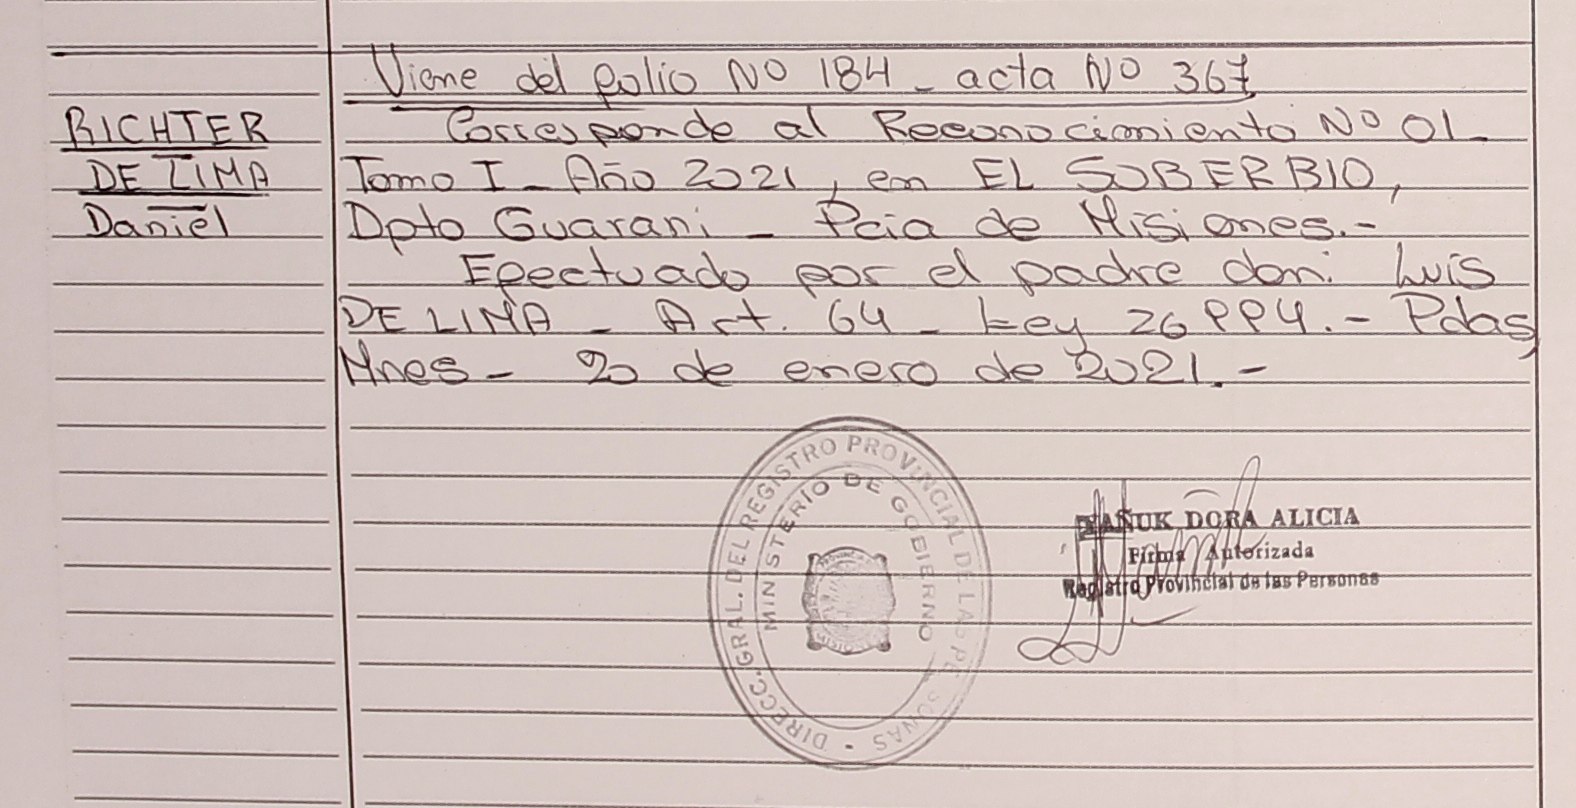 Viene del folio Nº 184 - acta Nº 367
RICHTER
DE LIMA
Daniel
Corresponde al Reconocimiento Nº 01 -
Tomo I - Año 2021, en EL SOBERBIO,
Dpto Guarani - Pcia de Misiones.-
Efectuado por el padre don: Luis
DE LIMA - Art. 64 - Ley 26994.- Pdas,
Mnes - 20 de enero de 2021.-
DIRECC. GRAL. DEL REGISTRO PROVINCIAL DE LAS PERSONAS
MINISTERIO DE GOBIERNO
DORA ALICIA
Firma Autorizada
Registro Provincial de las Personas